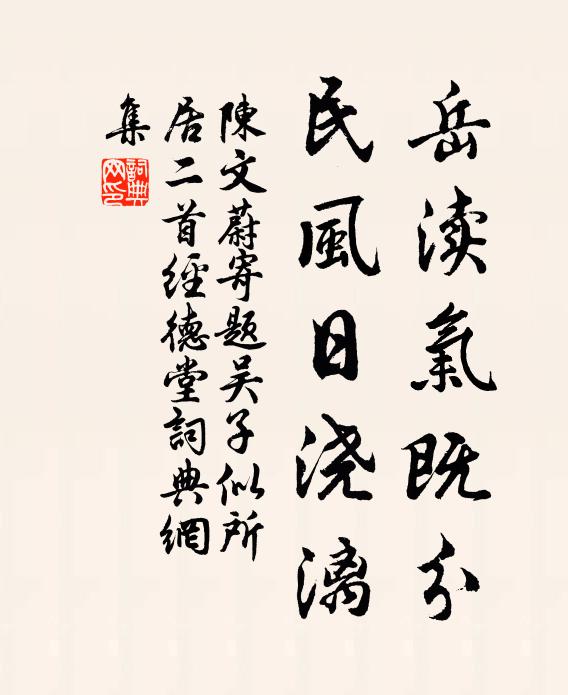 岳渎氣既分
民風日浇漓
陳文蔚寄題吴子似所
居二首經德堂詞典網
集
詞典
网印